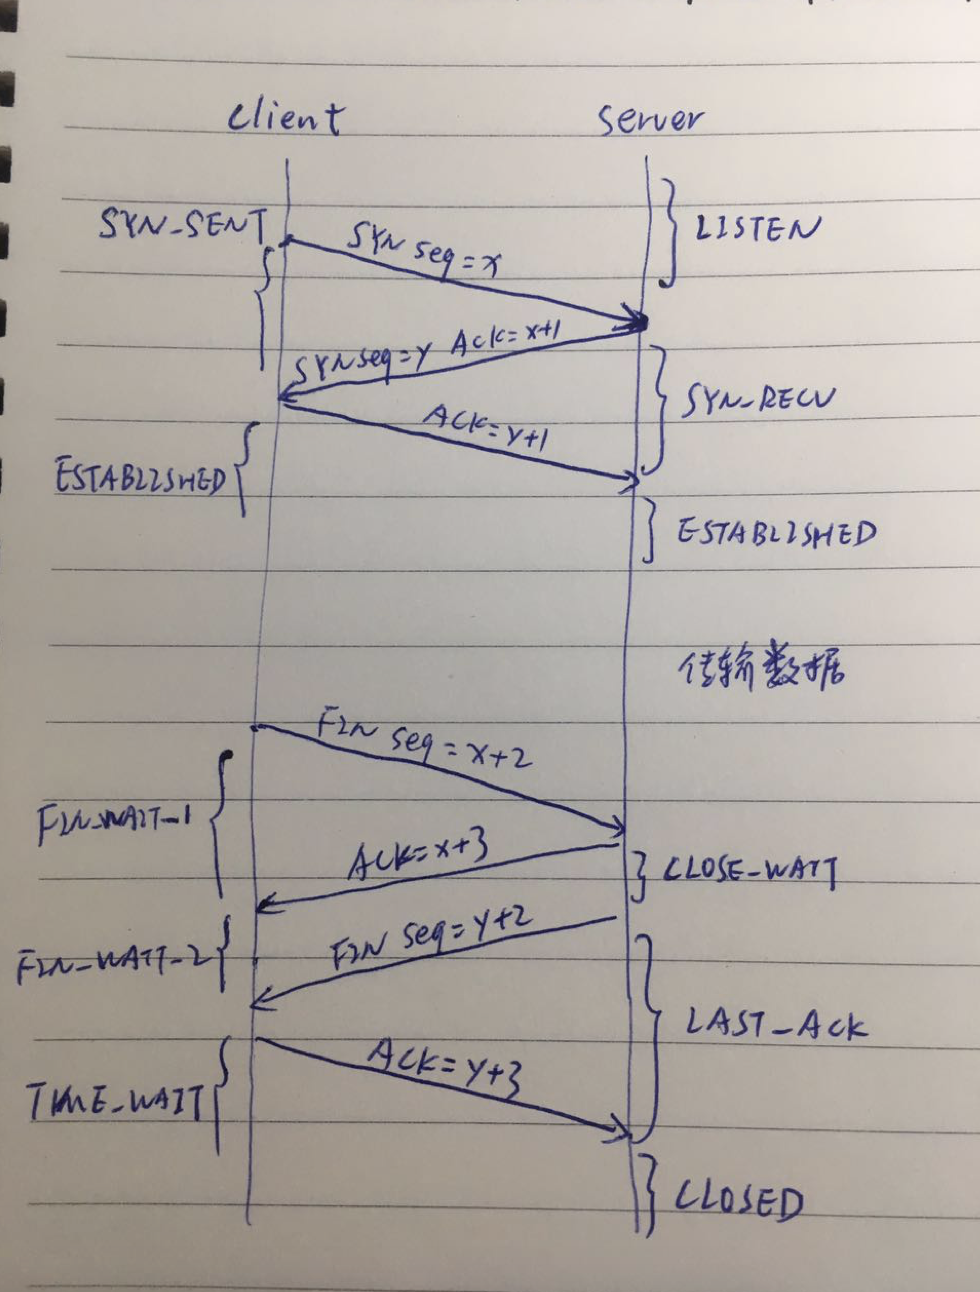 client
server
SYN_SENT
SYN seq=x
LISTEN
SYN seq=y Ack=x+1
SYN_RECV
ACK=y+1
ESTABLISHED
ESTABLISHED
传输数据
FIN seq=x+2
FIN_WAIT_1
ACK=x+3
CLOSE_WAIT
FIN seq=y+2
FIN_WAIT_2
LAST_ACK
ACK=y+3
TIME_WAIT
CLOSED